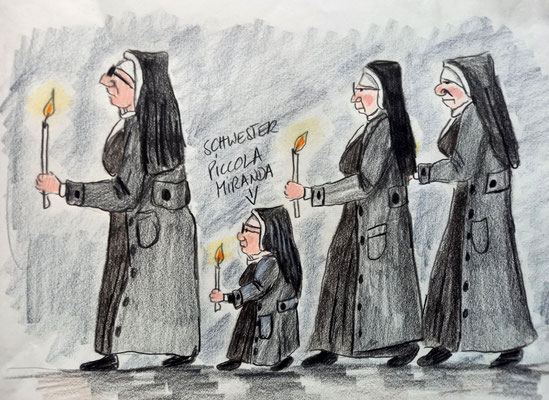 SCHWESTER
PICCOLA
MIRANDA